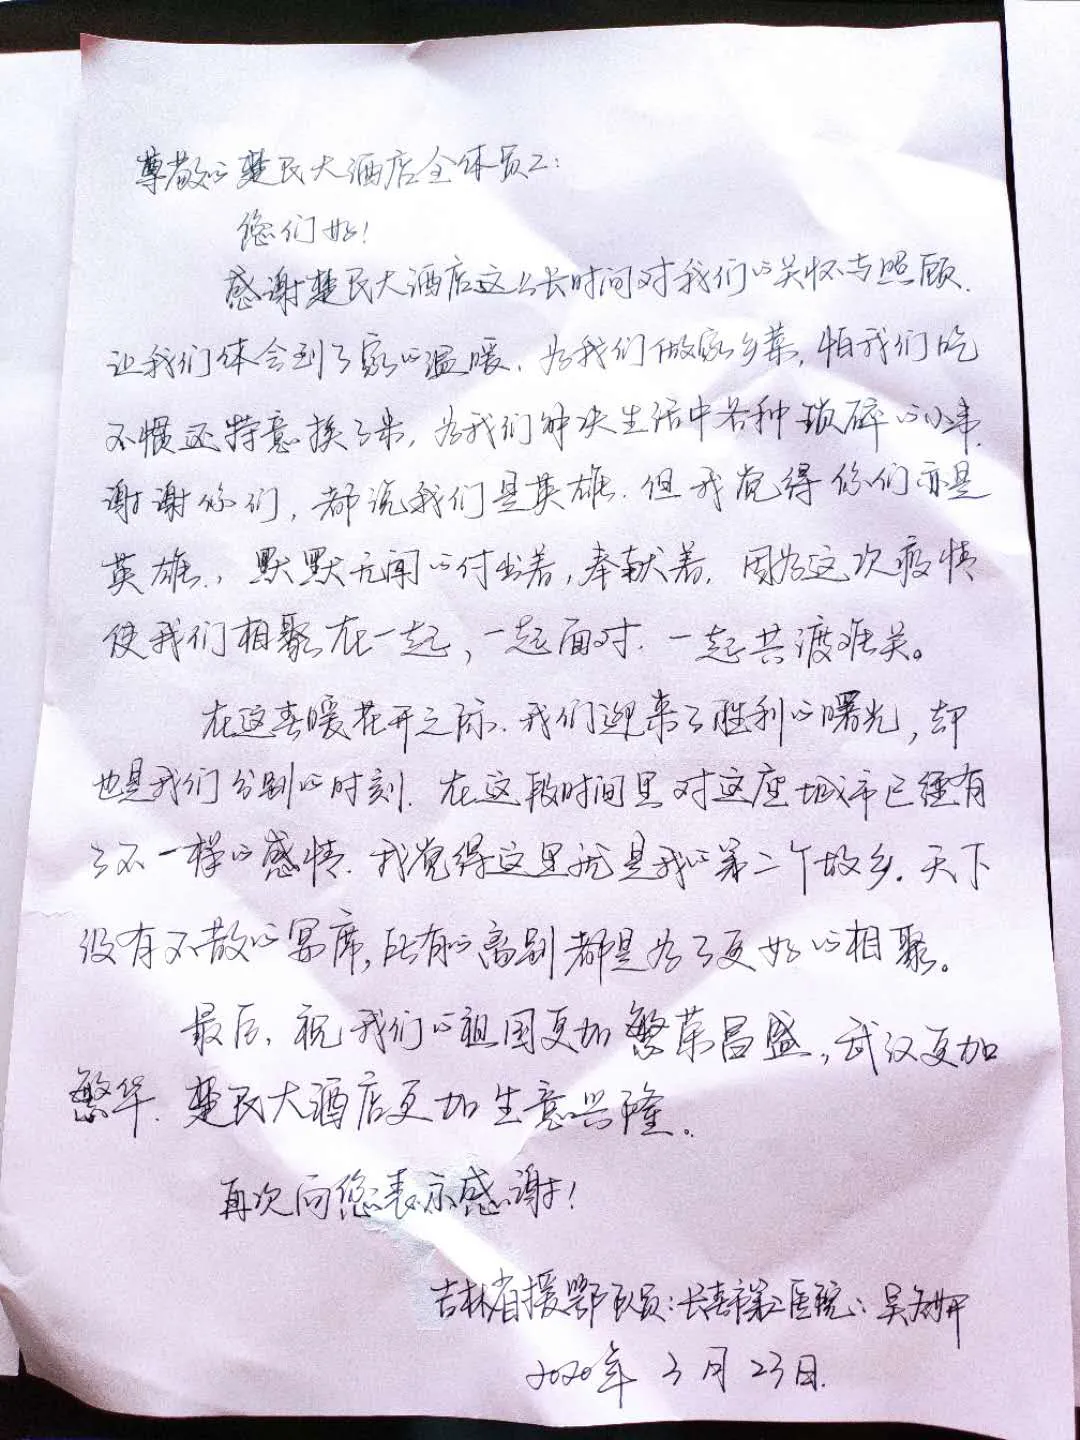 尊敬的楚民大酒店全体员工：
您们好！
感谢楚民大酒店这么长时间对我们的关怀与照顾.
让我们体会到了家的温暖.为我们做家乡菜,怕我们吃
不惯还特意换了米,为我们解决生活中各种琐碎的小事.
谢谢你们,都说我们是英雄.但我觉得你们亦是
英雄.,默默无闻的付出着,奉献着.因为这次疫情
使我们相聚在一起,一起面对.一起共渡难关。
在这春暖花开之际.我们迎来了胜利的曙光,却
也是我们分别的时刻.在这段时间里对这座城市已经有
了不一样的感情.我觉得这里就是我的第二个故乡.天下
没有不散的宴席,所有的离别都是为了更好的相聚。
最后,祝我们的祖国更加繁荣昌盛,武汉更加
繁华.楚民大酒店更加生意兴隆。
再次向您表示感谢！
吉林省援鄂队员:长春市第二医院:吴
2020年3月23日.